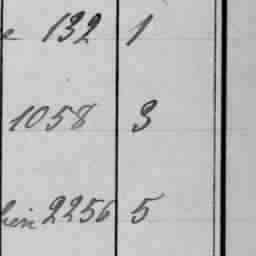 132 1
1058 3
2256 5